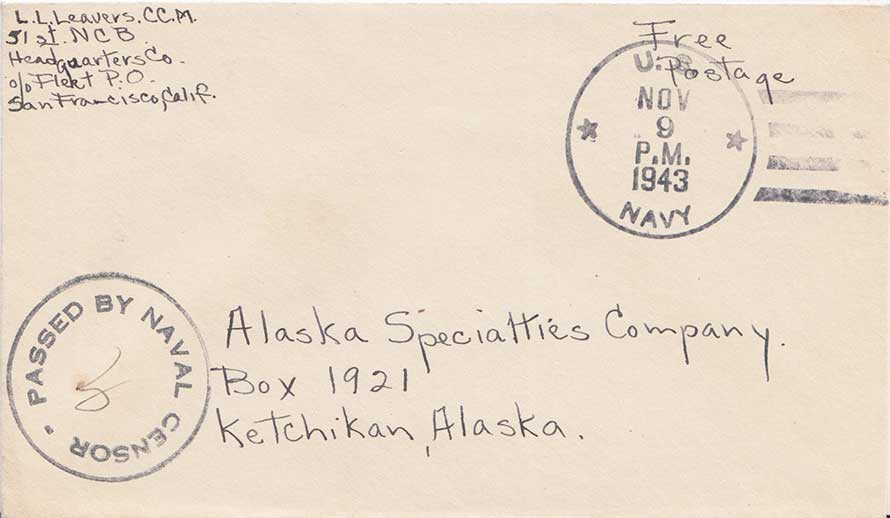 L.L. Leavers. C.C.M.
51st. NCB.
Headquarters Co.
c/o Fleet P.O.
San Francisco, Calif.
Free
Postage
U.S.
NOV
9
P.M.
1943
NAVY
PASSED BY NAVAL CENSOR
Alaska Specialties Company.
Box 1921
Ketchikan, Alaska.